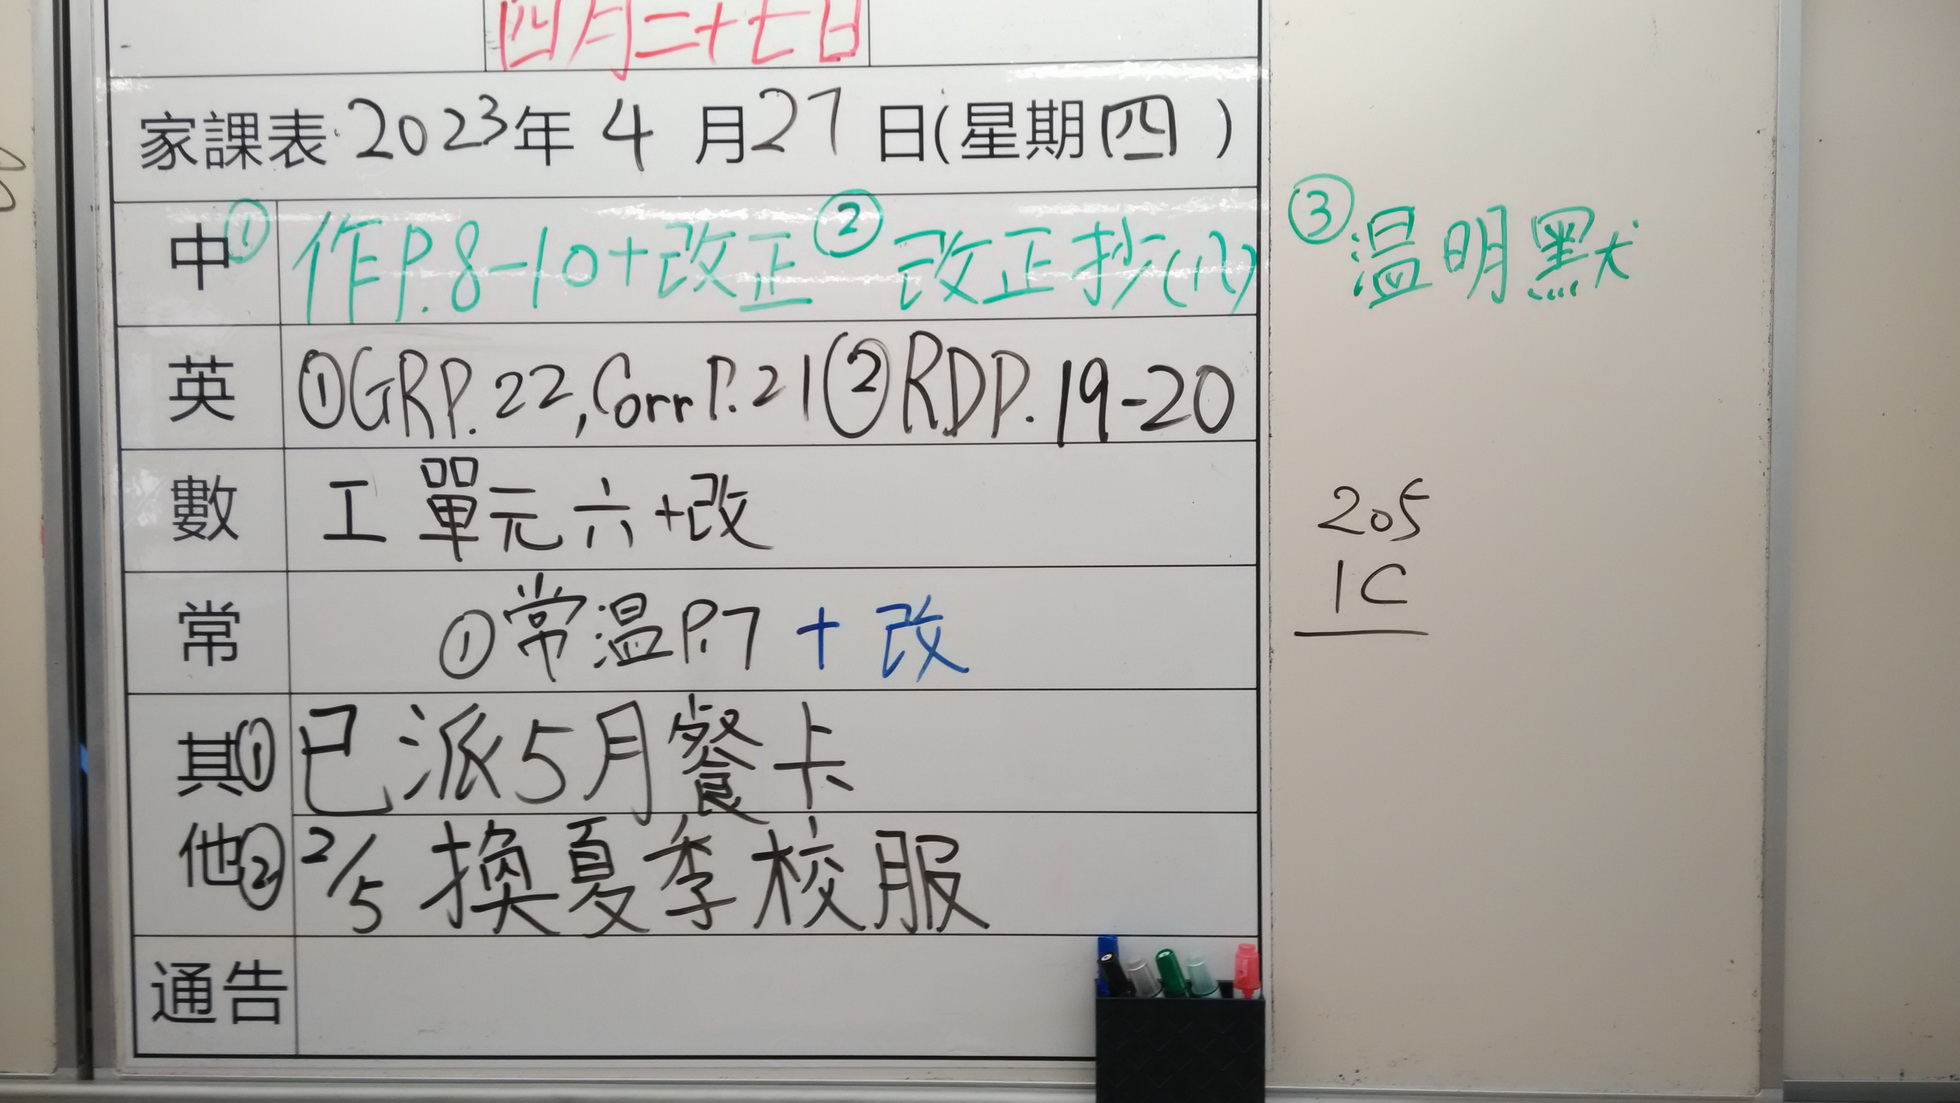 四月二十七日
家課表 2023年 4 月 27 日(星期 四 )
中 ① 作P.8-10+改正 ② 改正抄(八) ③ 温明默
英 ①GRP.22, Corr P.21 ②RDP.19-20
數 工 單元六+改
常 ①常温P.7 + 改
其 ① 已派5月餐卡
他 ② 2/5 換夏季校服
通告
205
1C